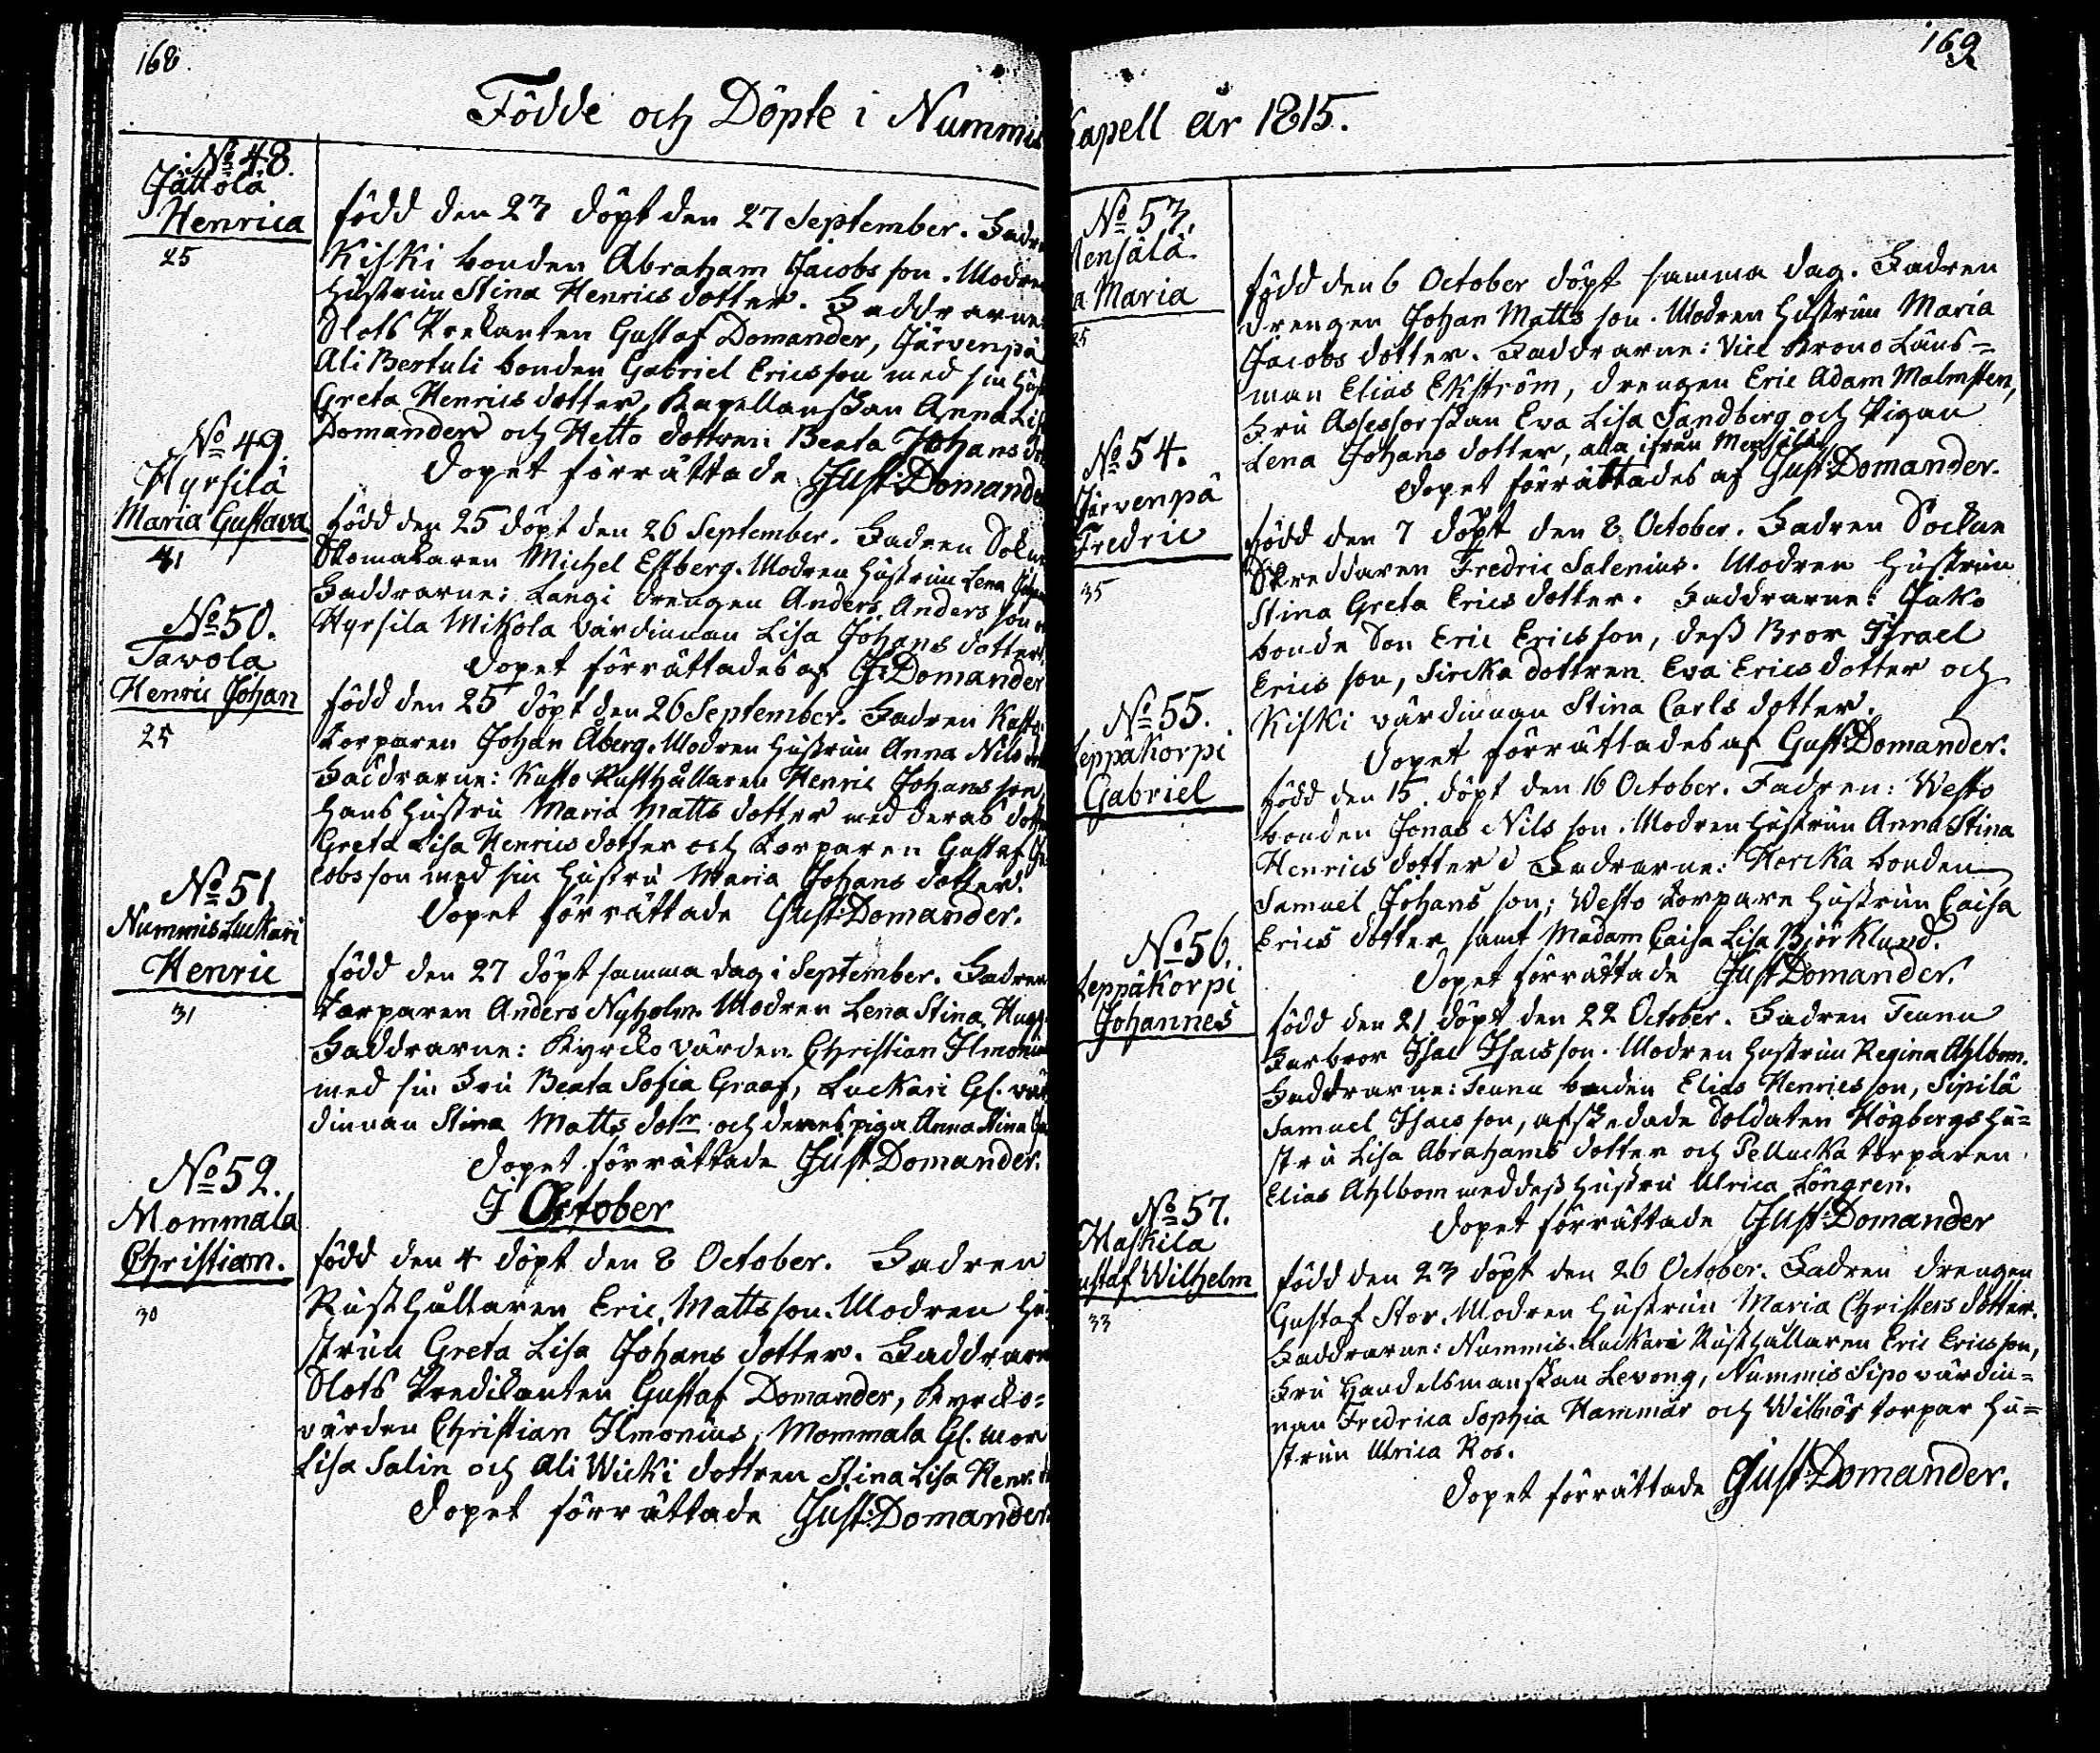 168.
Födde och Döpte i Nummis
No 48.
Jättölä
Henrica
25
född den 23 döpt den 27 September. Fadren
Kiski bonden Abraham Jacobs son. Modren
hustrun Stina Henrics dotter. Faddrarne
Slots Predikanten Gustaf Domander, Järvenpä
Ali Bertuli bonden Gabriel Ericsson med sin
Greta Henrics dotter, Kapellanskan Anna
Domander och Hetto dottren Beata Johans
Dopet förrättade Gust: Domander
No 49.
Hyrsilä
Maria Gustava
41
född den 25 döpt den 26 September. Fadren
Skomakaren Michel Estberg. Modren hustrun Lena
Faddrarne: Langi drengen Anders Anders son
Hyrsila Mikola värdinnan Lisa Johans dotter.
Dopet förrättades af G: Domander
No 50.
Tavola
Henric Johan
25
född den 25 döpt den 26 September. Fadren
torparen Johan Åberg. Modren hustrun Anna Nils
Faddrarne: Kusto Rusthållaren Henric Johans son,
hans hustru Maria Matts dotter med deras
Greta Lisa Henrics dotter och torparen Gustaf
cobs son med sin hustru Maria Johans dotter.
Dopet förrättade Gust: Domander.
No 51.
Nummis Luckari
Henric
31
född den 27 döpt samma dag i September. Fadren
torparen Anders Nyholm. Modren Lena Stina
Faddrarne: Kyrckovärden Christian Ilmonius
med sin Fru Beata Sofia Graaf, Luckari Gl. vär
dinnan Stina Matts dotr och deras piga Anna Stina
Dopet förrättade Gust: Domander.
I October
No 52.
Mommala
Christian.
30
född den 4 döpt den 8 October. Fadren
Rusthållaren Eric Matts son. Modren Hu
strun Greta Lisa Johans dotter. Faddrarne
Slots Predikanten Gustaf Domander, Kyrcko=
värden Christian Ilmonius, Mommala Gl. mor
Lisa Salin och Ali Wicki dottren Stina Lisa Henr.
Dopet förrättade Gust: Domander.
169.
Kapell år 1815.
No 53.
Mensälä.
a Maria
25
född den 6 October döpt samma dag. Fadren
drengen Johan Matts son. Modren hustrun Maria
Jacobs dotter. Faddrarne: Vice Krono Läns=
man Elias Ekström, drengen Eric Adam Malmsten,
Fru Assessorskan Eva Lisa Sandberg och Pigan
Lena Johans dotter, alla ifrån Mensälä
Dopet förrättades af Gust: Domander.
No 54.
Järvenpä
Fredric
35
född den 7 döpt den 8 October. Fadren Socken
Skreddaren Fredric Salenius. Modren hustrun
Stina Greta Erics dotter. Faddrarne: Jako
bonde Son Eric Ericsson, dess Bror Israel
Erics son, Sircka dottren Eva Erics dotter och
Kiski värdinnan Stina Carls dotter.
Dopet förrättades af Gust: Domander.
No 55.
Leppäkorpi
Gabriel
född den 15. döpt den 16 October. Fadren: Westo
bonden Jonas Nils son. Modren hustrun Anna Stina
Henrics dotter Fadrarne: Horcka bonden
Samuel Johans son; Westo torpare hustrun Caisa
Erics dotter samt Madam Caisa Lisa Björklund.
Dopet förrättade Gust Domander.
No 56.
Leppäkorpi
Johannes
född den 21 döpt den 22 October. Fadren Teunu
Farbror Isac Isacsson. Modren hustrun Regina Ahlbom.
Faddrarne: Teunu bonden Elias Henrics son, Sipilä
Samuel Isacs son, afskedade Soldaten Högbergs hu=
stru Lisa Abrahams dotter och Pellucka torparen
Elias Ahlbom med dess hustru Ulrica Löngren.
Dopet förrättade Gust: Domander
No 57.
Maskila
Gustaf Wilhelm
33
född den 23 döpt den 26 October. Fadren drengen
Gustaf Stor. Modren hustrun Maria Christers dotter.
Faddrarne: Nummis Luckari Rusthållaren Eric Ericsson,
Fru Handelsmanskan Levong, Nummis Sipo värdin=
nan Fredrica Sophia Hammar och torpar hu=
strun Ulrica Ros.
Dopet förrättade Gust: Domander.